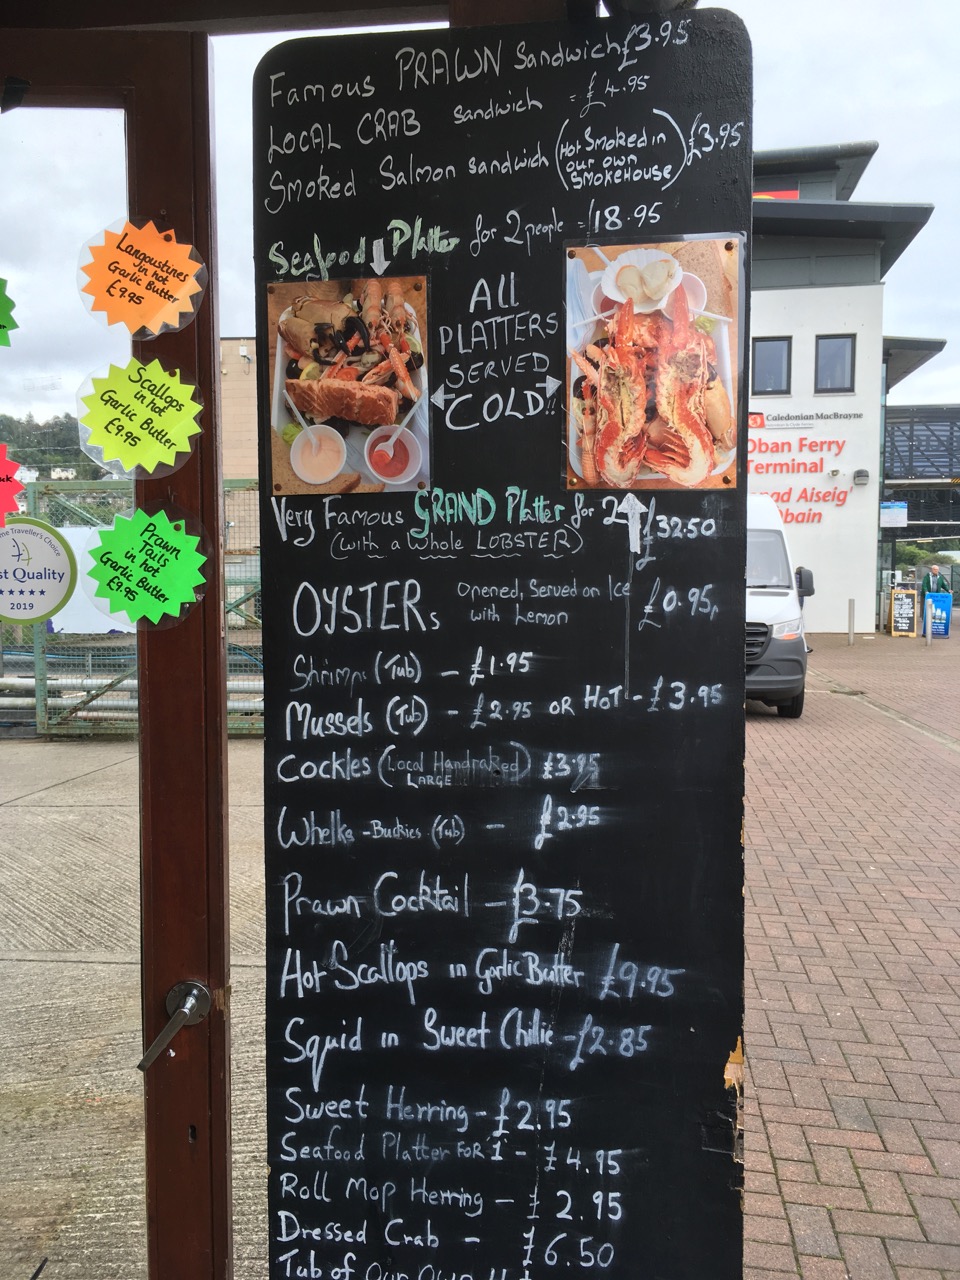 Famous PRAWN Sandwich £3.95
LOCAL CRAB Sandwich = £4.95
Smoked Salmon Sandwich (Hot Smoked in our own SMOKEHOUSE) £3.95
Seafood Platter for 2 people = £18.95
ALL
PLATTERS
SERVED
COLD!!
Very Famous GRAND Platter for 2 £32.50
(with a Whole LOBSTER)
OYSTERs Opened, Served on Ice with Lemon £0.95p
Shrimps (Tub) - £1.95
Mussels (Tub) - £2.95 OR HOT - £3.95
Cockles (Local Handraked) £3.95
LARGE
Whelks - Buckies (Tub) - £2.95
Prawn Cocktail - £3.75
Hot Scallops in Garlic Butter £9.95
Squid in Sweet Chillie - £2.85
Sweet Herring - £2.95
Seafood Platter FOR 1 - £4.95
Roll Mop Herring - £2.95
Dressed Crab - £6.50
Tub of Our Own
Langoustines
in hot
Garlic Butter
£9.95
Scallops
in hot
Garlic Butter
£9.95
Prawn
Tails
in hot
Garlic Butter
£9.95
me Traveller's Choice
st Quality
2019
Caledonian MacBrayne
Oban Ferry
Terminal
Aiseig